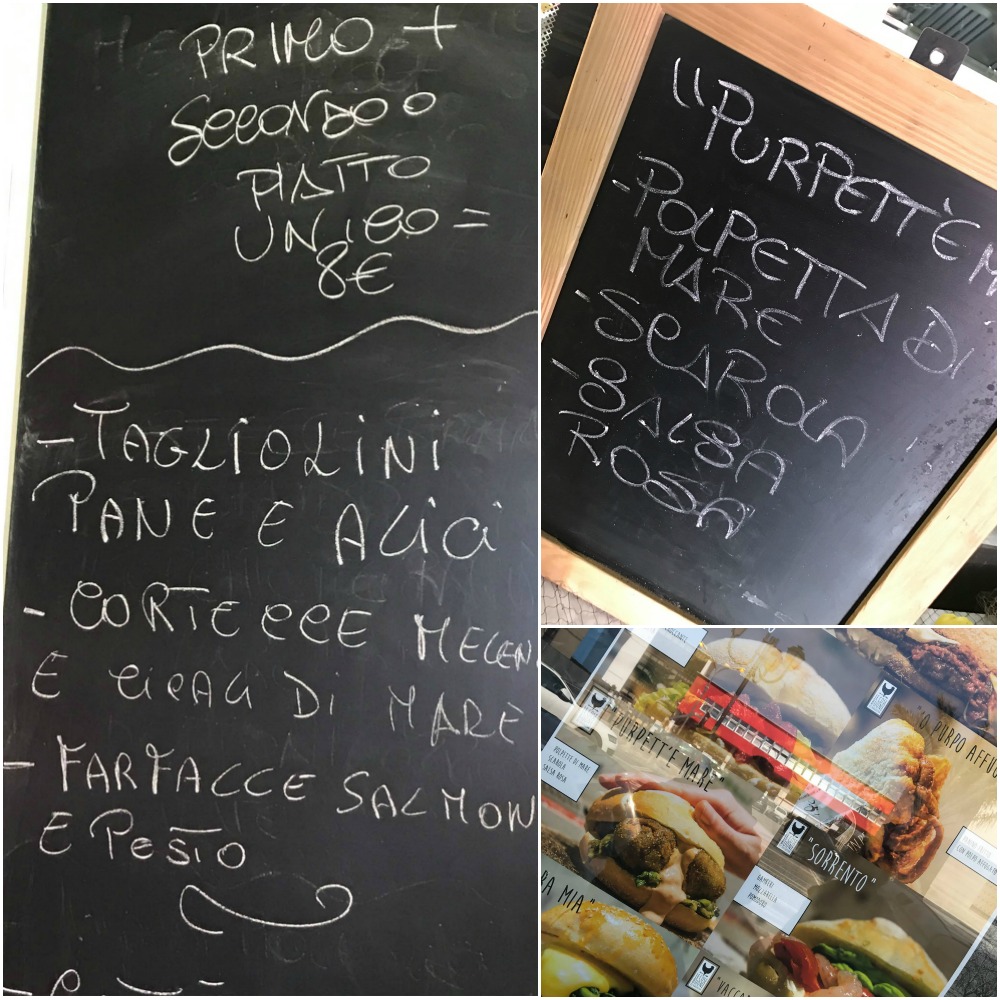 PRIMO +
SECONDO O
PIATTO
UNICO =
8€
- TAGLIOLINI
PANE E ALICI
- CORTECCE MELEN
E CICALI DI MARE
- FARFALLE SALMON
E PESTO
"PURPETT'E M
- POLPETTA DI
MARE
- SCAROLA
- SALSA
ROSA
"PURPETT'E MARE"
POLPETTE DI MARE
SCAROLA
SALSA ROSA
"O PURPO AFFUO
"SORRENTO"
GAMBERI
MOZZARELLA
POMODORO
PA MIA"
"VACCA